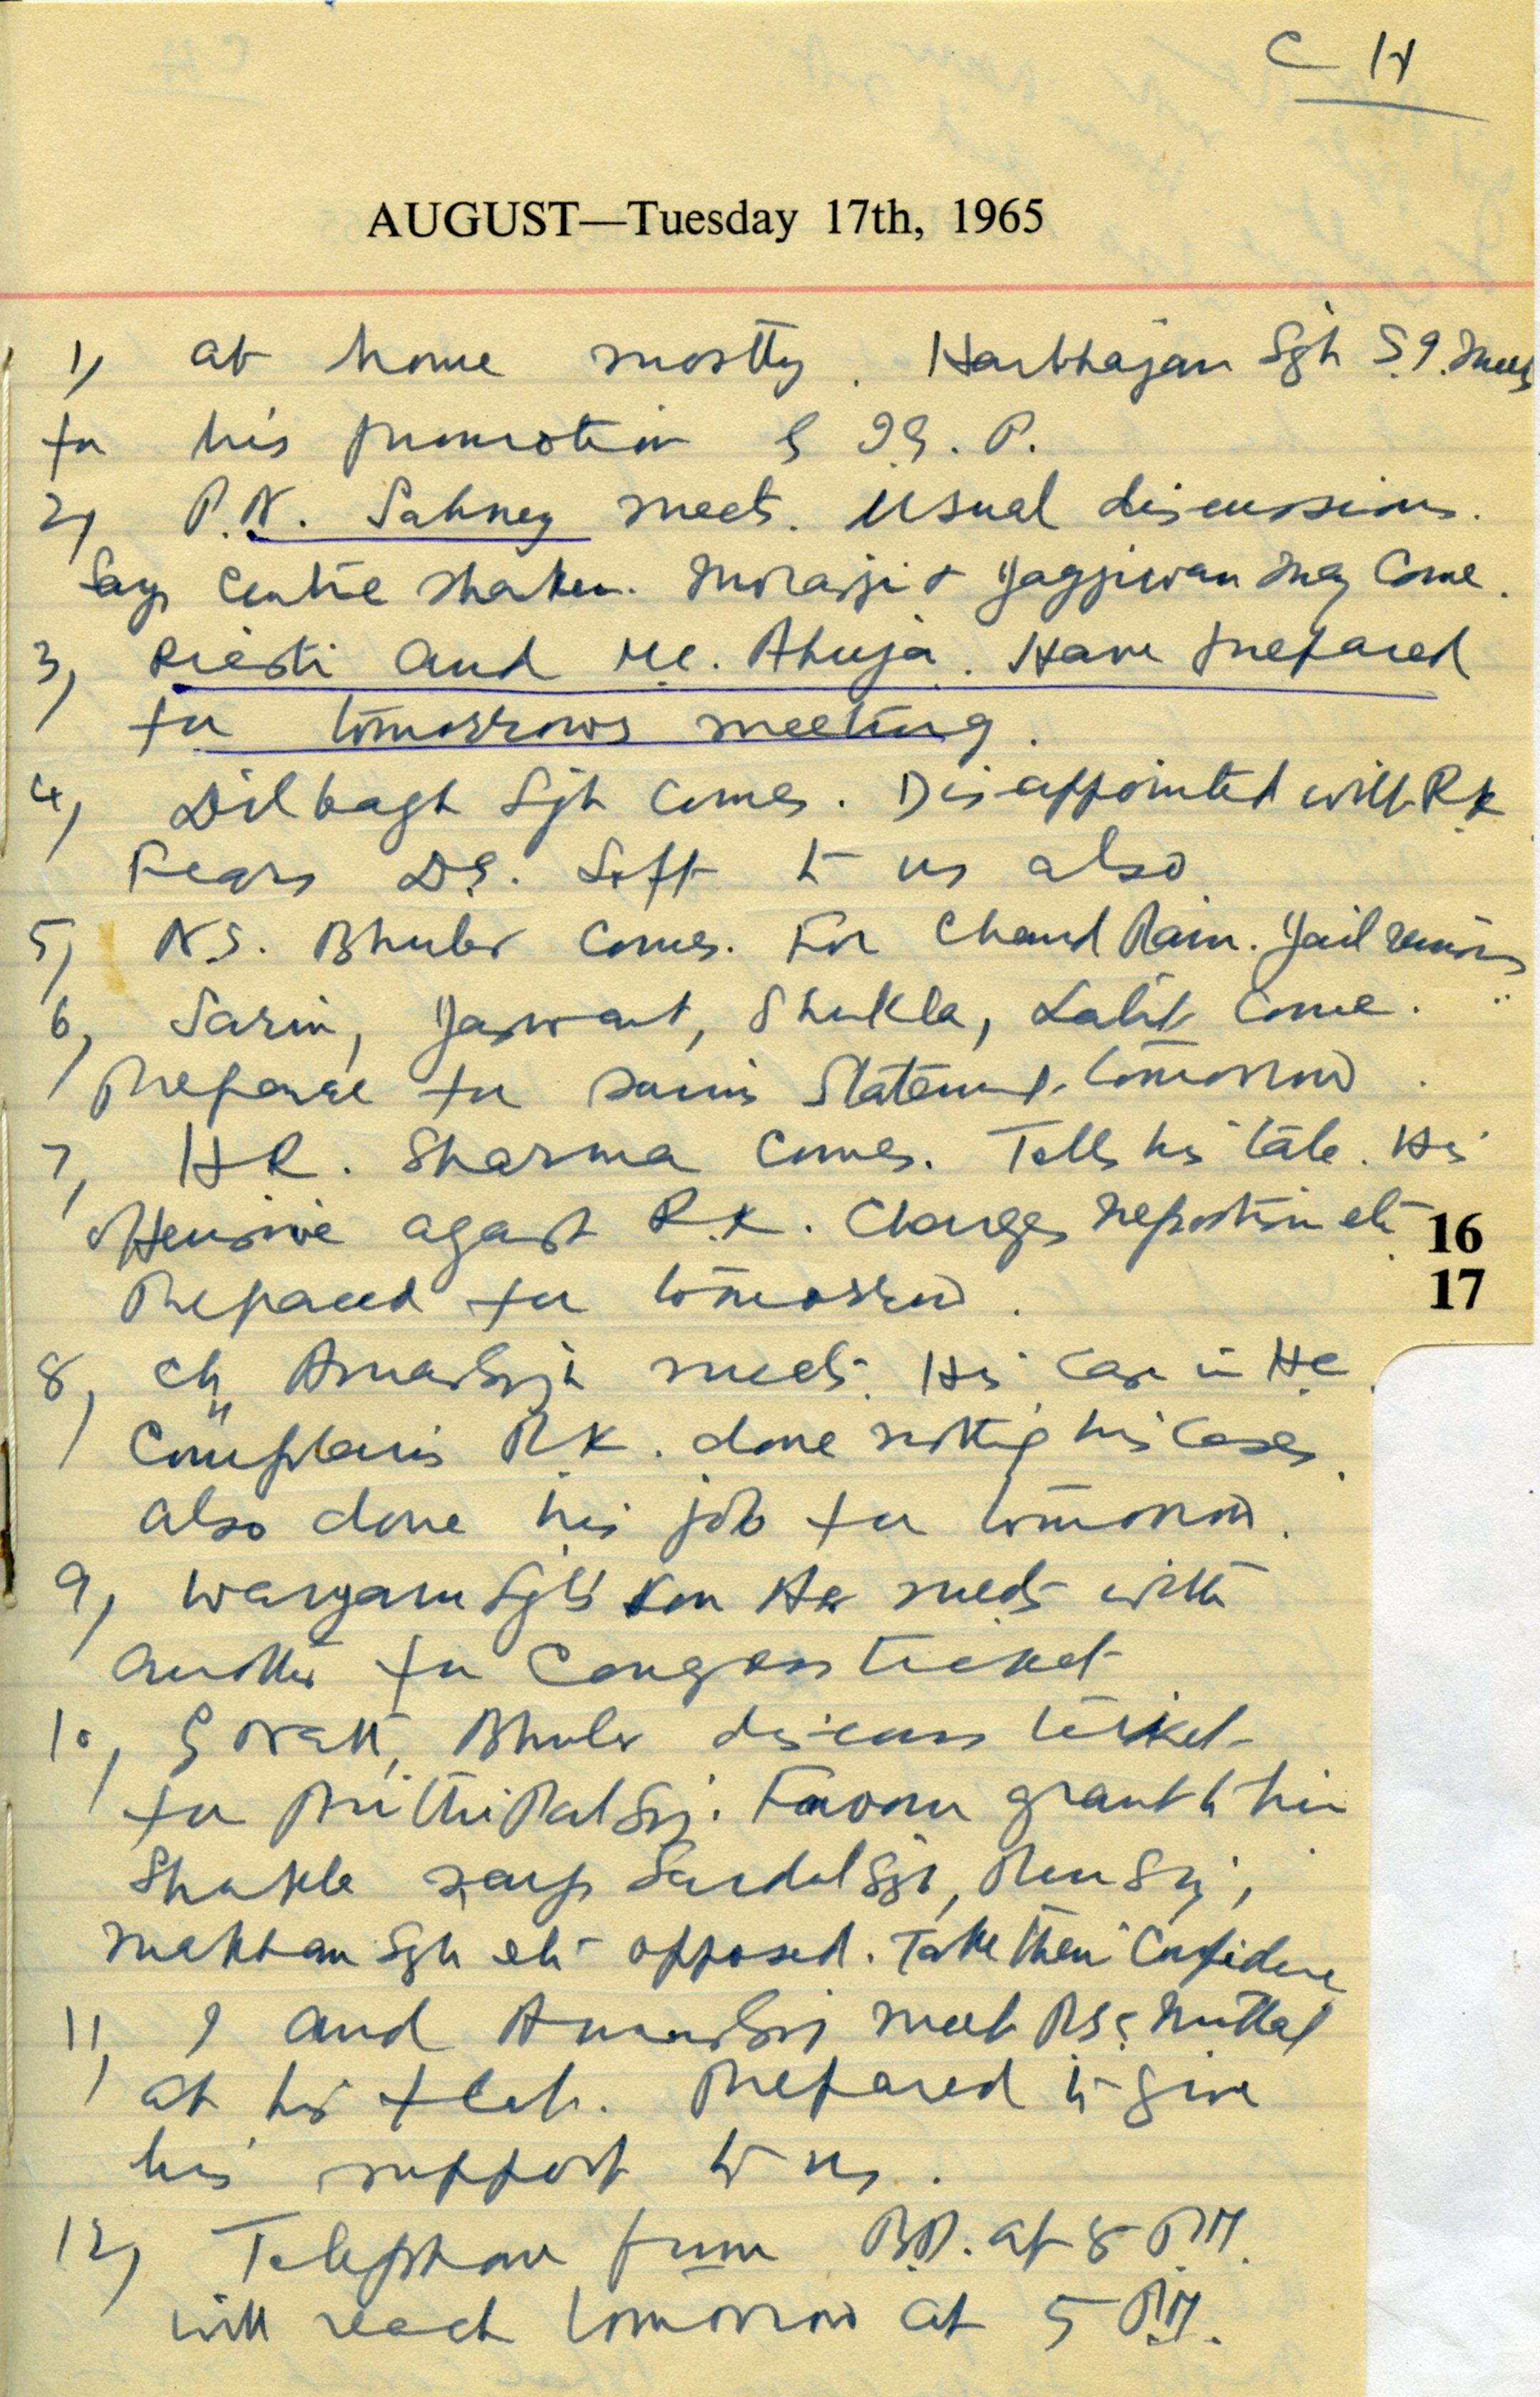 C H
AUGUST—Tuesday 17th, 1965
1, at home mostly. Harbhajan Sgh S.I. meets
for his promotion I.G.P.
2, P.N. Sahney meets. Usual discussions.
Says Centre shaken. Morarji & Jagjiwan may come.
3, and Ahuja. Have prepared
for tomorrows meeting.
4, Dilbagh Sgh comes. Disappointed with R.K
Fears D.S. Soft to us also
5, N.S. Bhuler comes. For Chand Ram. Jail
6, Sarin, Jaswant, Shukla, Lalit come.
Prepare for Statement tomorrow.
7, H R. Sharma comes. Tells his tale. His
offensive against R.K. Charges nepotism etc
Prepared for tomorrow.
8, Ch Amar Singh meets. His case in H.C.
Complains R.K. done nothing his cases.
also done his job for tomorrow.
9, Waryam Sgh's son meets with
another for Congress ticket
10, Bhuler discuss ticket
for Prithi Pal Sgh. Favour grant to him
Shukla says Sgh,
Makhan Sgh etc opposed. Take them Confidence
11, I and Amar Singh meet Mittal
at his flat. Prepared to give
his support to us.
12, Telephone from at 8 P.M.
will reach tomorrow at 5 P.M.
16
17